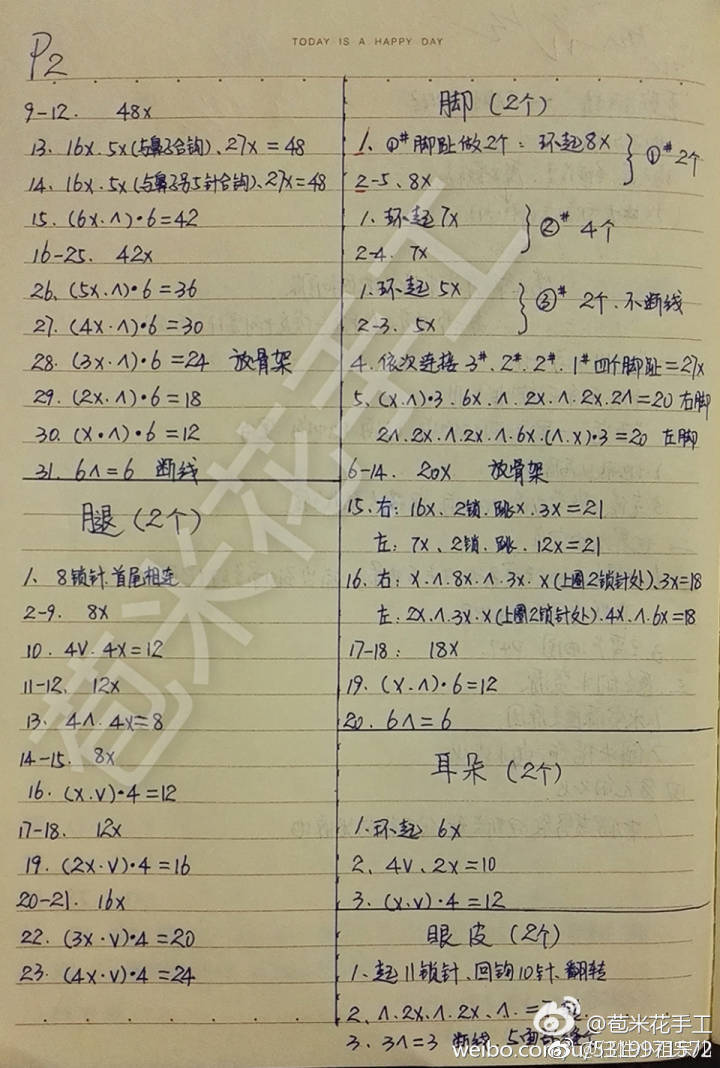 TODAY IS A HAPPY DAY
P2
9-12. 48x
13. 16x.5x(与鼻子合钩)、27x=48
14. 16x.5x(与鼻子另5针合钩)、27x=48
15. (6x.∧)•6=42
16-25. 42x
26. (5x.∧)•6=36
27. (4x.∧)•6=30
28. (3x.∧)•6=24 放骨架
29. (2x.∧)•6=18
30. (x•∧)•6=12
31. 6∧=6 断线
腿(2个)
1. 8锁针.首尾相连
2-9. 8x
10. 4V.4x=12
11-12. 12x
13. 4∧.4x=8
14-15. 8x
16. (x.v)•4=12
17-18. 12x
19. (2x.v)•4=16
20-21. 16x
22. (3x.v)•4=20
23. (4x.v)•4=24
脚(2个)
1. ①#脚趾做2个:环起8x
2-5. 8x
①# 2个
1. 环起7x
2-4. 7x
②# 4个
1. 环起5x
2-3. 5x
③# 2个.不断线
4. 依次连接3#.2#.2#.1#四个脚趾=27x
5. (x.∧)•3.6x.∧.2x.∧.2x.2∧=20 右脚
2∧.2x.∧.2x.∧.6x.(∧.x)•3=20 左脚
6-14. 20x 放骨架
15. 右: 16x.2锁.跳x.3x=21
左: 7x、2锁.跳.12x=21
16. 右: x.∧.8x.∧.3x.x(上圈2锁针处)、3x=18
左: 2x.∧.3x.x(上圈2锁针处).4x.∧.6x=18
17-18: 18x
19. (x.∧)•6=12
20. 6∧=6
耳朵(2个)
1. 环起 6x
2. 4V、2x=10
3. (x.v)•4=12
眼皮(2个)
1. 起11锁针、回钩10针、翻转
2. ∧.2x.∧.2x.∧.=
3. 3∧=3 断线
荀米花手工
@荀米花手工
weibo.com/u/5319971572